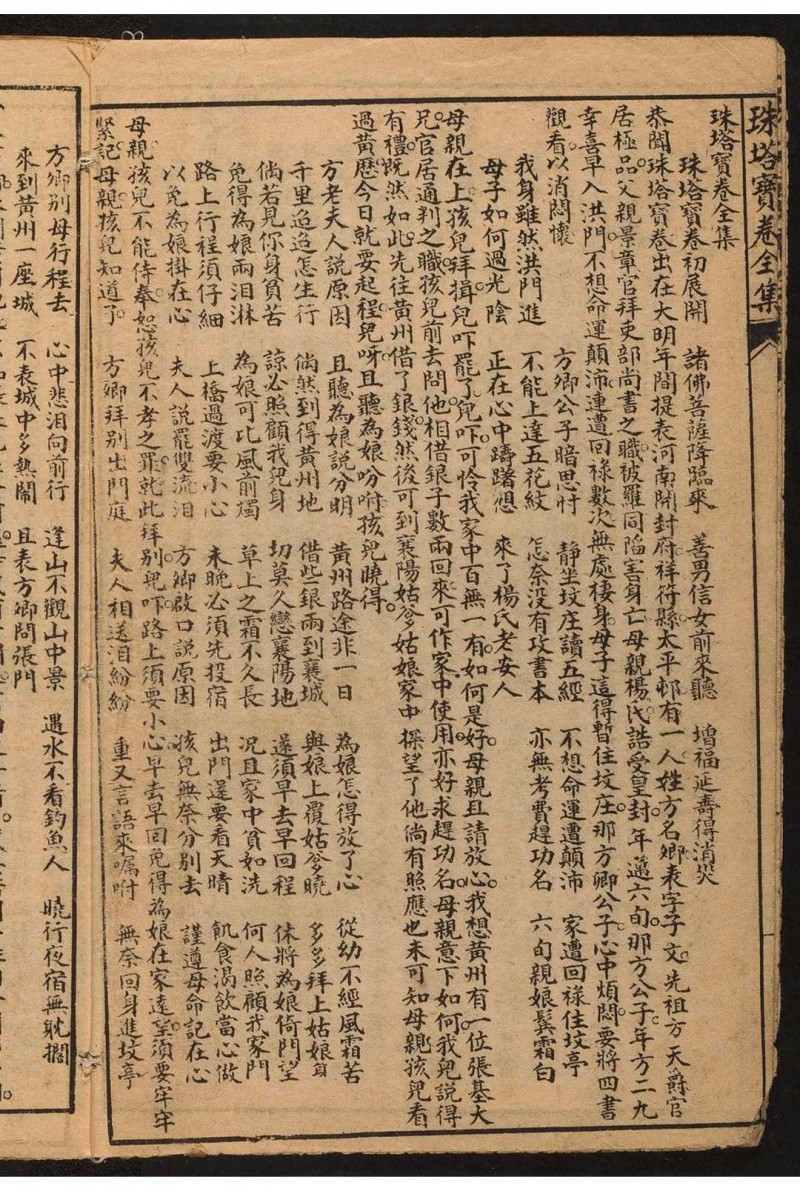 珠塔寶卷全集
珠塔寶卷全集
珠塔寶卷初展開 諸佛菩薩降臨來 善男信女前來聽 增福延壽得消災
恭聞珠塔寶卷出在大明年間提表河南開封府祥符縣太平邨有一人姓方名卿表字子文先祖方天爵官
居極品父親景章官拜吏部尚書之職被羅同陷害身亡母親楊氏誥受皇封年邁六旬那方公子年方二九
幸喜早入洪門不想命運顛沛連遭回祿數次無處棲身母子這得暫住坟庄那方卿公子心中煩悶要將四書
觀看以消悶懷 方卿公子暗思忖 靜坐坟庄讀五經 不想命運遭顛沛 家遭回祿住坟亭
我身雖然洪門進 不能上達五花紋 怎奈沒有攻書本 亦無考費趕功名 六旬親娘鬂霜白
母子如何過光陰 正在心中躊躇想 來了楊氏老安人
母親在上孩兒拜揖兒吓罷了兒吓可怜我家中百無一有如何是好母親且請放心我想黃州有一位張基大
兄官居通判之職孩兒前去問他相借銀子數兩回來可作家中使用亦好求趕功名母親意下如何我兒說得
有禮既然如此先往黃州借了銀錢然後可到襄陽姑爹姑娘家中探望了他倘有照應也未可知母親孩兒看
過黃歷今日就要起程兒呀且聽為娘吩咐孩兒曉得
方老夫人說原因 且聽為娘說分明 黃州路途非一日 為娘怎得放了心 從幼不經風霜苦
千里迢迢怎生行 倘然到得黃州地 借些銀兩到襄城 與娘上覆姑爹曉 多多拜上姑娘身
倘若見你身貧苦 諒必照顧我兒身 切莫久戀襄陽地 遂須早去早回程 休將為娘倚門望
免得為娘兩泪淋 為娘可比風前燭 草上之霜不久長 況且家中貧如洗 何人照顧我家門
路上行程須仔細 上橋過渡要小心 未晚必須先投宿 出門遂要看天晴 飢食渴飲當心做
以免為娘掛在心 夫人說罷雙流泪 方卿啟口說原因 孩兒無奈分別去 謹遵母命記在心
母親孩兒不能侍奉恕孩兒不孝之罪就此拜別兒吓路上須要小心早去早回免得為娘在家遠望須要牢牢
緊記母親孩兒知道了 方卿拜別出門庭 夫人相送泪紛紛 重又言語來囑咐 無奈回身進坟亭
方卿別母行程去 心中悲泪向前行 逢山不觀山中景 遇水不看釣魚人 曉行夜宿無耽擱
來到黃州一座城 不表城中多熱鬧 且表方卿問張門